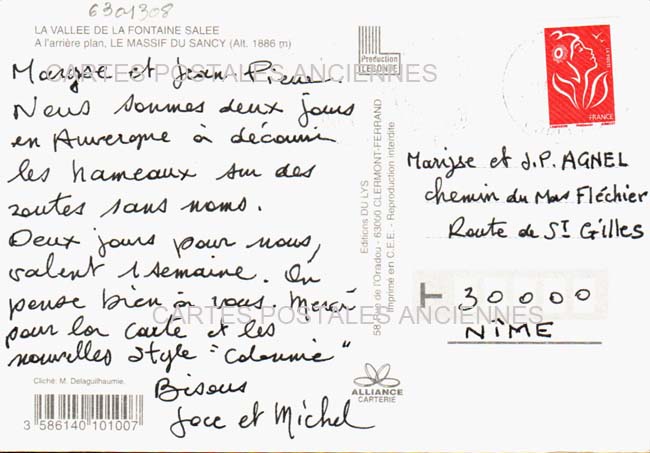 6301308
LA VALLEE DE LA FONTAINE SALEE
A l'arrière plan, LE MASSIF DU SANCY (Alt. 1886 m)
Maryse et Jean-Pierre
CARTES POSTALES ANCIENNES
Nous sommes deux jours
en Auvergne à découvrir
les hameaux sur des
routes sans noms.
Deux jours pour nous,
valent 1 semaine. On
pense bien à vous. Merci
CARTES POSTALES ANCIENNES
pour la carte et les
nouvelles style "Colonnie"
Bisous
Joce et Michel
Cliché: M. Delaguilhaumie.
3 586140 101007
Production
LECONTE
Editions DU LYS
58, Rue de l'Oradou - 63000 CLERMONT-FERRAND
Imprimé en C.E.E. - Reproduction interdite
ALLIANCE
CARTERIE
LA POSTE
FRANCE
Maryse et J.P. AGNEL
chemin du Mas Fléchier
Route de St Gilles
30000
NÎME